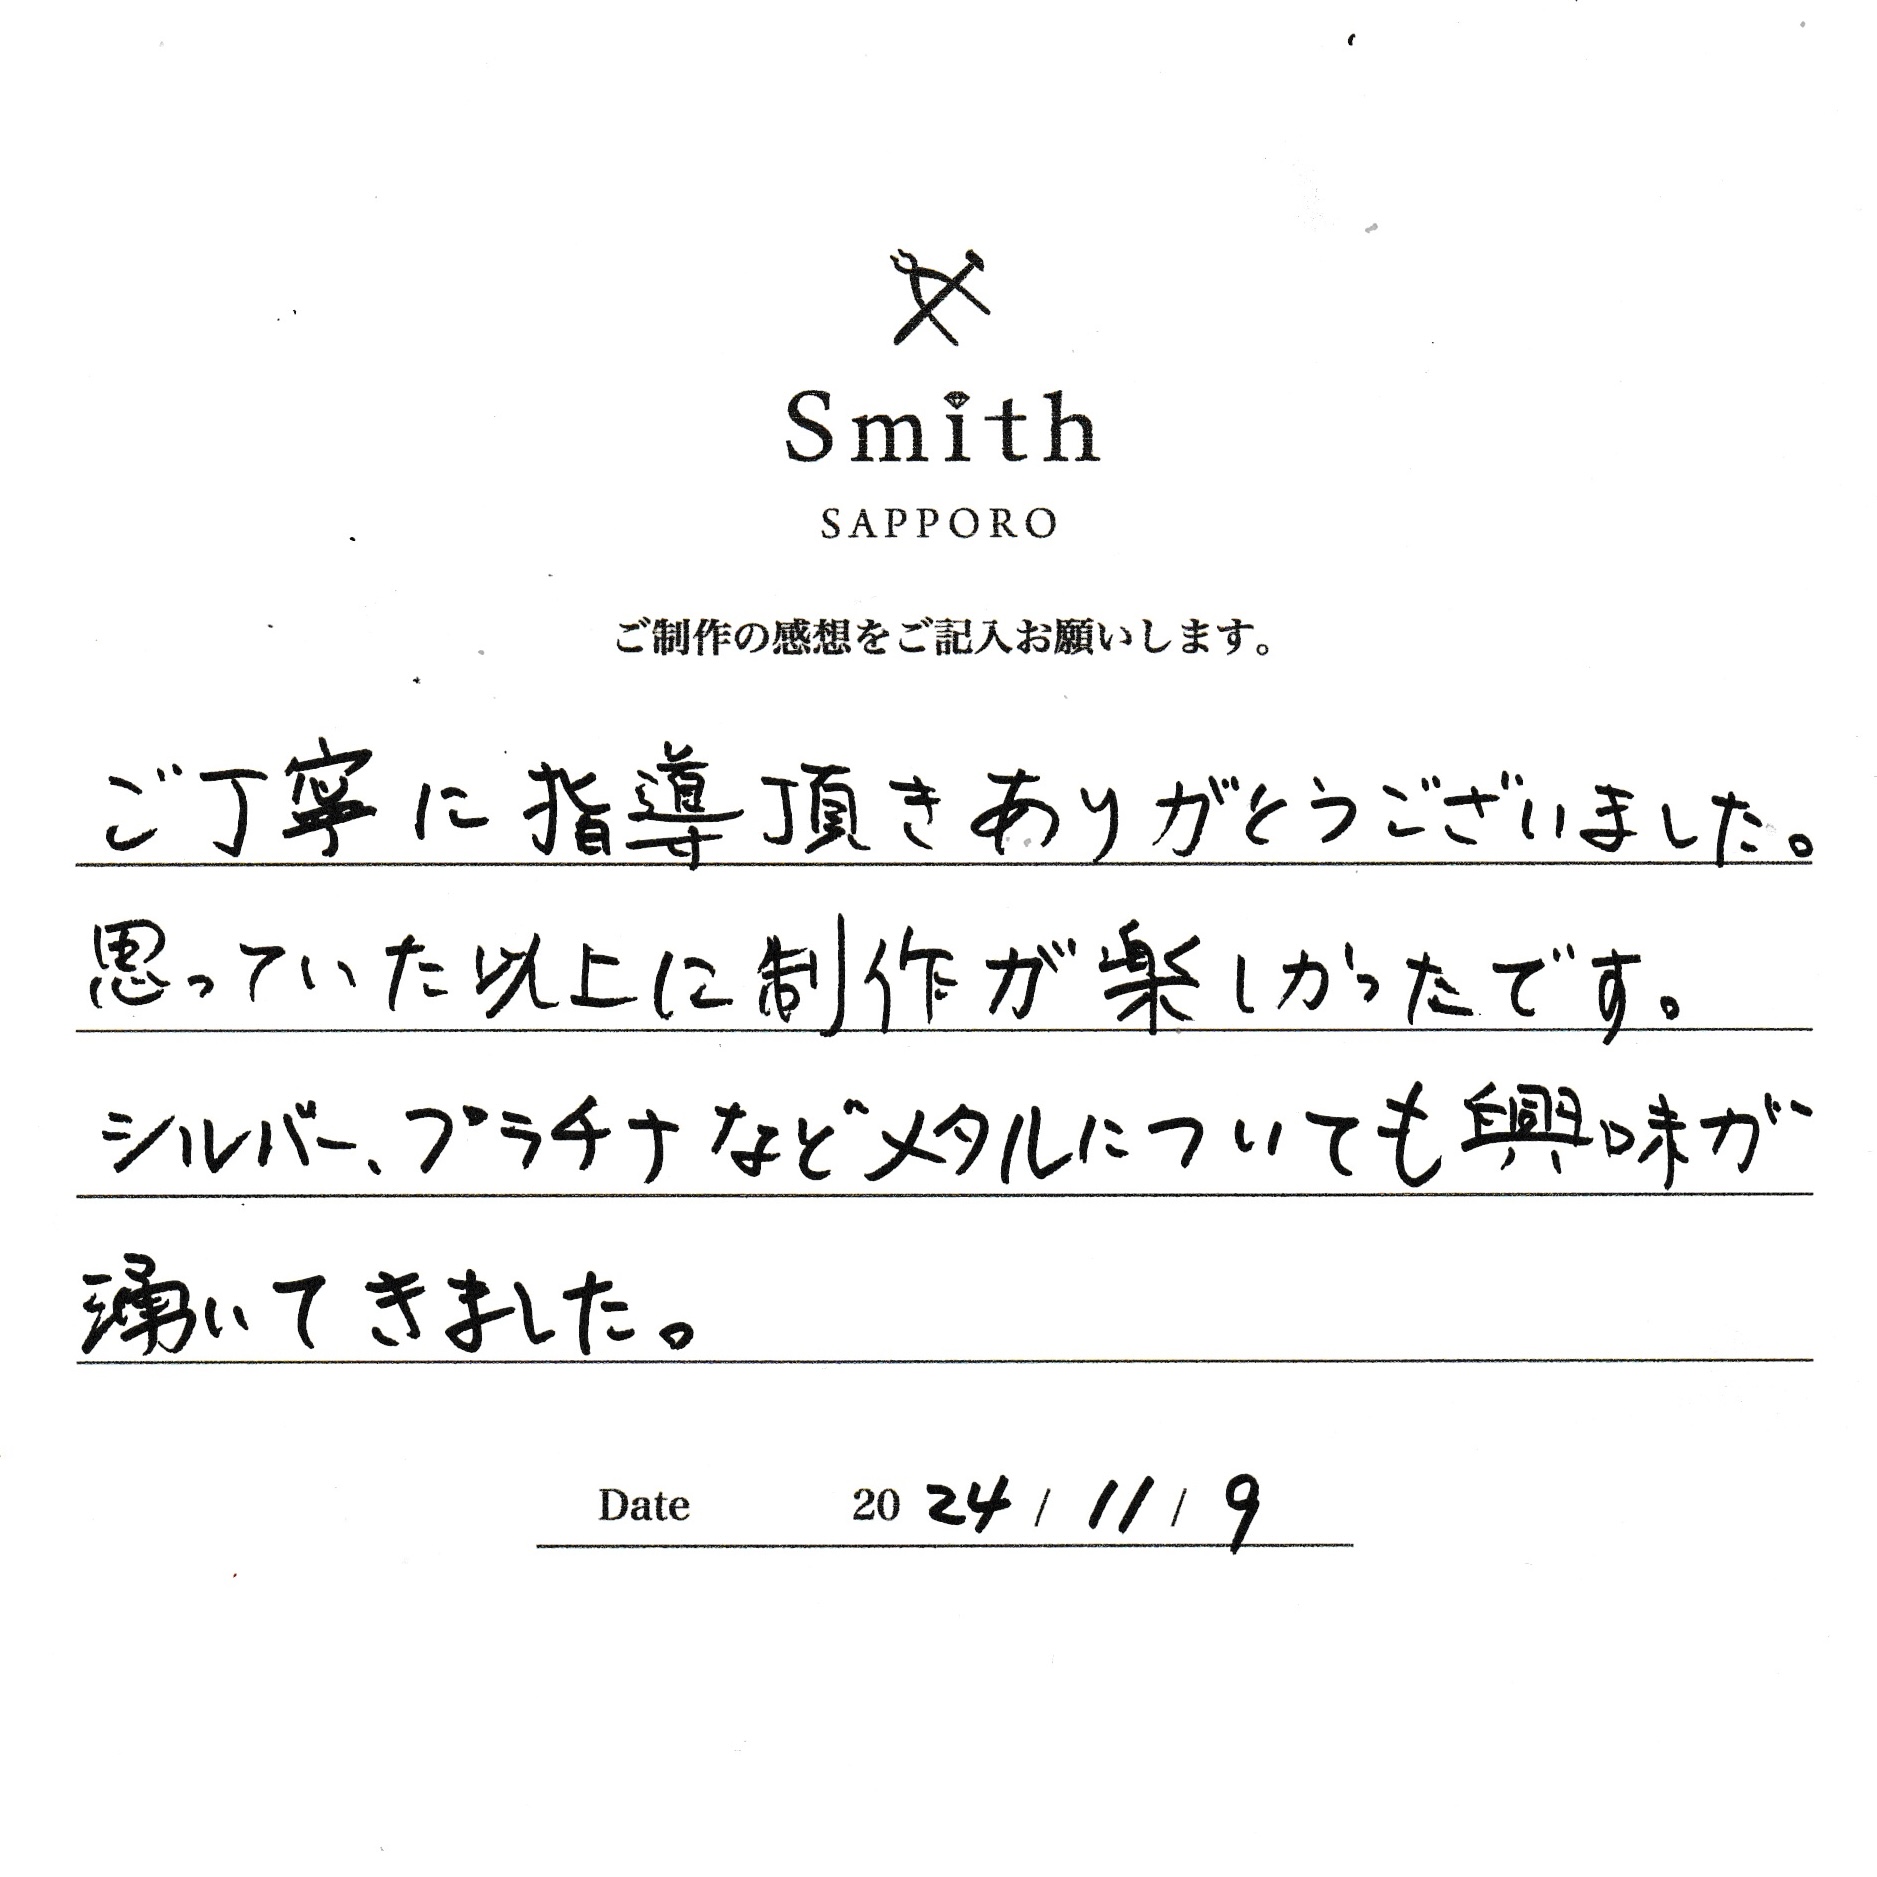 Smith
SAPPORO
ご制作の感想をご記入お願いします。
ご丁寧に指導頂きありがとうございました。
思っていた以上に制作が楽しかったです。
シルバー、プラチナなどメタルについても興味が
湧いてきました。
Date 2024/11/9